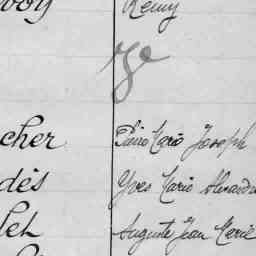 Rémy
cher Pierre Marie Joseph
dès Yves Marie Alexandre
let Auguste Jean Marie